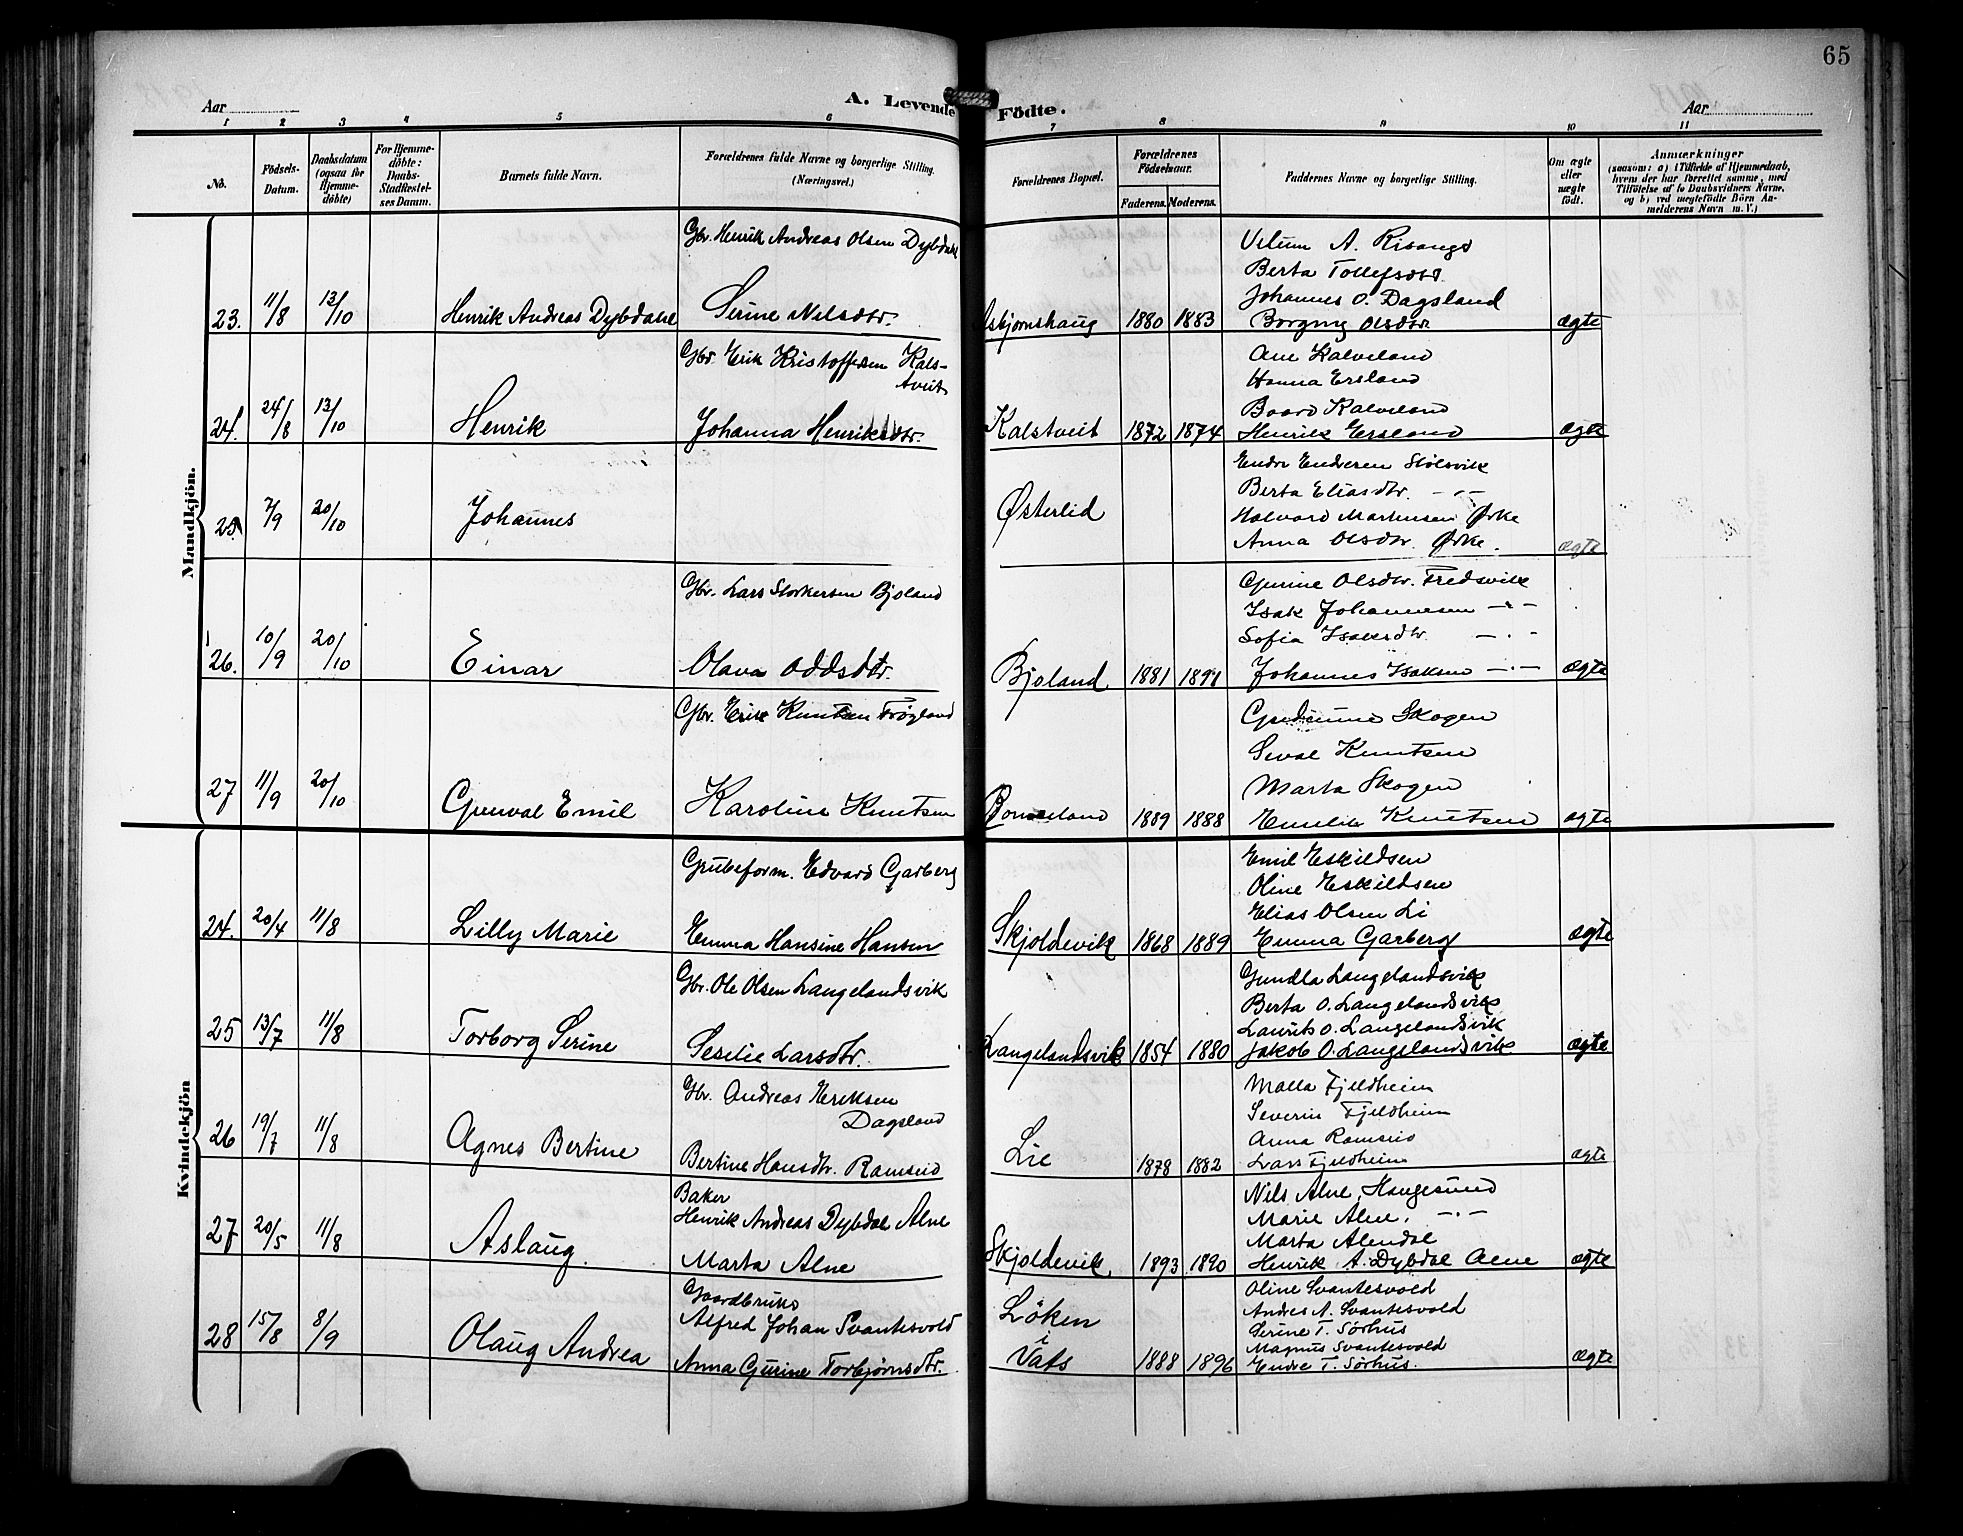 65
Aar
A. Levende Födte.
Aar
1 2 3 4 5 6 7 8 9 10 11
No.
Födsels-
Datum.
Daabsdatum
(ogsaa for
Hjemme-
döbte)
For Hjemme-
döbte:
Daabs-
Stadfæstel-
ses Datum.
Barnets fulde Navn.
Forældrenes fulde Navne og borgerlige Stilling.
(Næringsvei.)
Forældrenes Bopæl.
Forældrenes
Födselsaar.
Faderens. Moderens.
Faddernes Navne og borgerlige Stilling.
Om ægte
eller
uægte
født.
Anmærkninger
(saasom: a) i Tilfælde af Hjemmedaab,
hvem der har forrettet samme, med
Tilföielse af to Daabsvidners Navne,
og b) ved uægtefödte Börn An-
melderens Navn m. V.)
Mandkjön.
Gbr. Henrik Andreas Olsen Dybdahl
23. 11/8 13/10 Henrik Andreas Dybdahl Serine Nilsdtr. Asbjørnshaug 1880 1883
Berta Tollefsdtr.
Johannes O. Dagsland
Borgny Olsdtr ægte
Gbr Erik Kristoffersen Kals-
tveit
24. 24/8 13/10 Henrik Johanna Henriksdtr. Kalstveit 1872 1874
Ane Kalveland
Hanna Ersland
Baard Kalveland
Henrik Ersland ægte
25. 7/9 20/10 Johannes Østerlid
Endre Endresen Stølsvik
Berta Eliasdtr. -"-
Halvard Martinsen Ørke
Anna Olsdtr. Ørke. ægte
Gbr. Lars Storkersen Bjoland
26. 10/9 20/10 Einar Olava Oddsdtr. Bjoland 1881 1891
Gurine Olsdtr. Fredsvik
Isak Johannesen -"-
Sofia Isaksdtr. -"-
Johannes Isaksen -"- ægte
Gbr. Erik Knutsen Frøland
27 11/9 20/10 Gunval Emil Karoline Knutsen 1889 1888
Skogen
Seval Knutsen
Marta Skogen
Emelie Knutsen ægte
Kvindekjön
Grubeform. Edvard Garberg
24. 20/4 11/8 Lilly Marie Emma Hansine Hansen Skjoldevik 1868 1889
Emil Eskildsen
Oline Eskildsen
Elias Olsen Li
Emma Garberg ægte
Gbr. Ole Olsen Langelandsvik
25 13/7 11/8 Torborg Serine Seselie Larsdtr. Langelandsvik 1854 1880
Gundla Langelandsvik
Berta O. Langelandsvik
Laurits O. Langelandsvik
Jakob O. Langelandsvik ægte
Gbr. Andreas Heriksen
Dagsland
26 19/7 11/8 Agnes Bertine Bertine Hansdtr. Ramseid Lie 1878 1882
Malla Fjeldheim
Severin Fjeldheim
Anna Ramseid
Lars Fjeldheim ægte
Baker
Henrik Andreas Dybdal Alne
27 20/5 11/8 Aslaug. Marta Alne Skjoldevik 1893 1890
Nils Alne, Haugesund
Marie Alne. -"-
Marta Alendal
Henrik A. Dybdal Alne ægte
Gaardbruks
Alfred Johan Svantesvold
28 15/8 8/9 Olaug Andrea Anna Gurine Torbjørnsdtr. Löken
i
Vats 1888 1896
Oline Svantesvold
Andres A. Svantesvold
Serine T. Sørhus
Magnus Svantesvold
Endre T. Sørhus. ægte